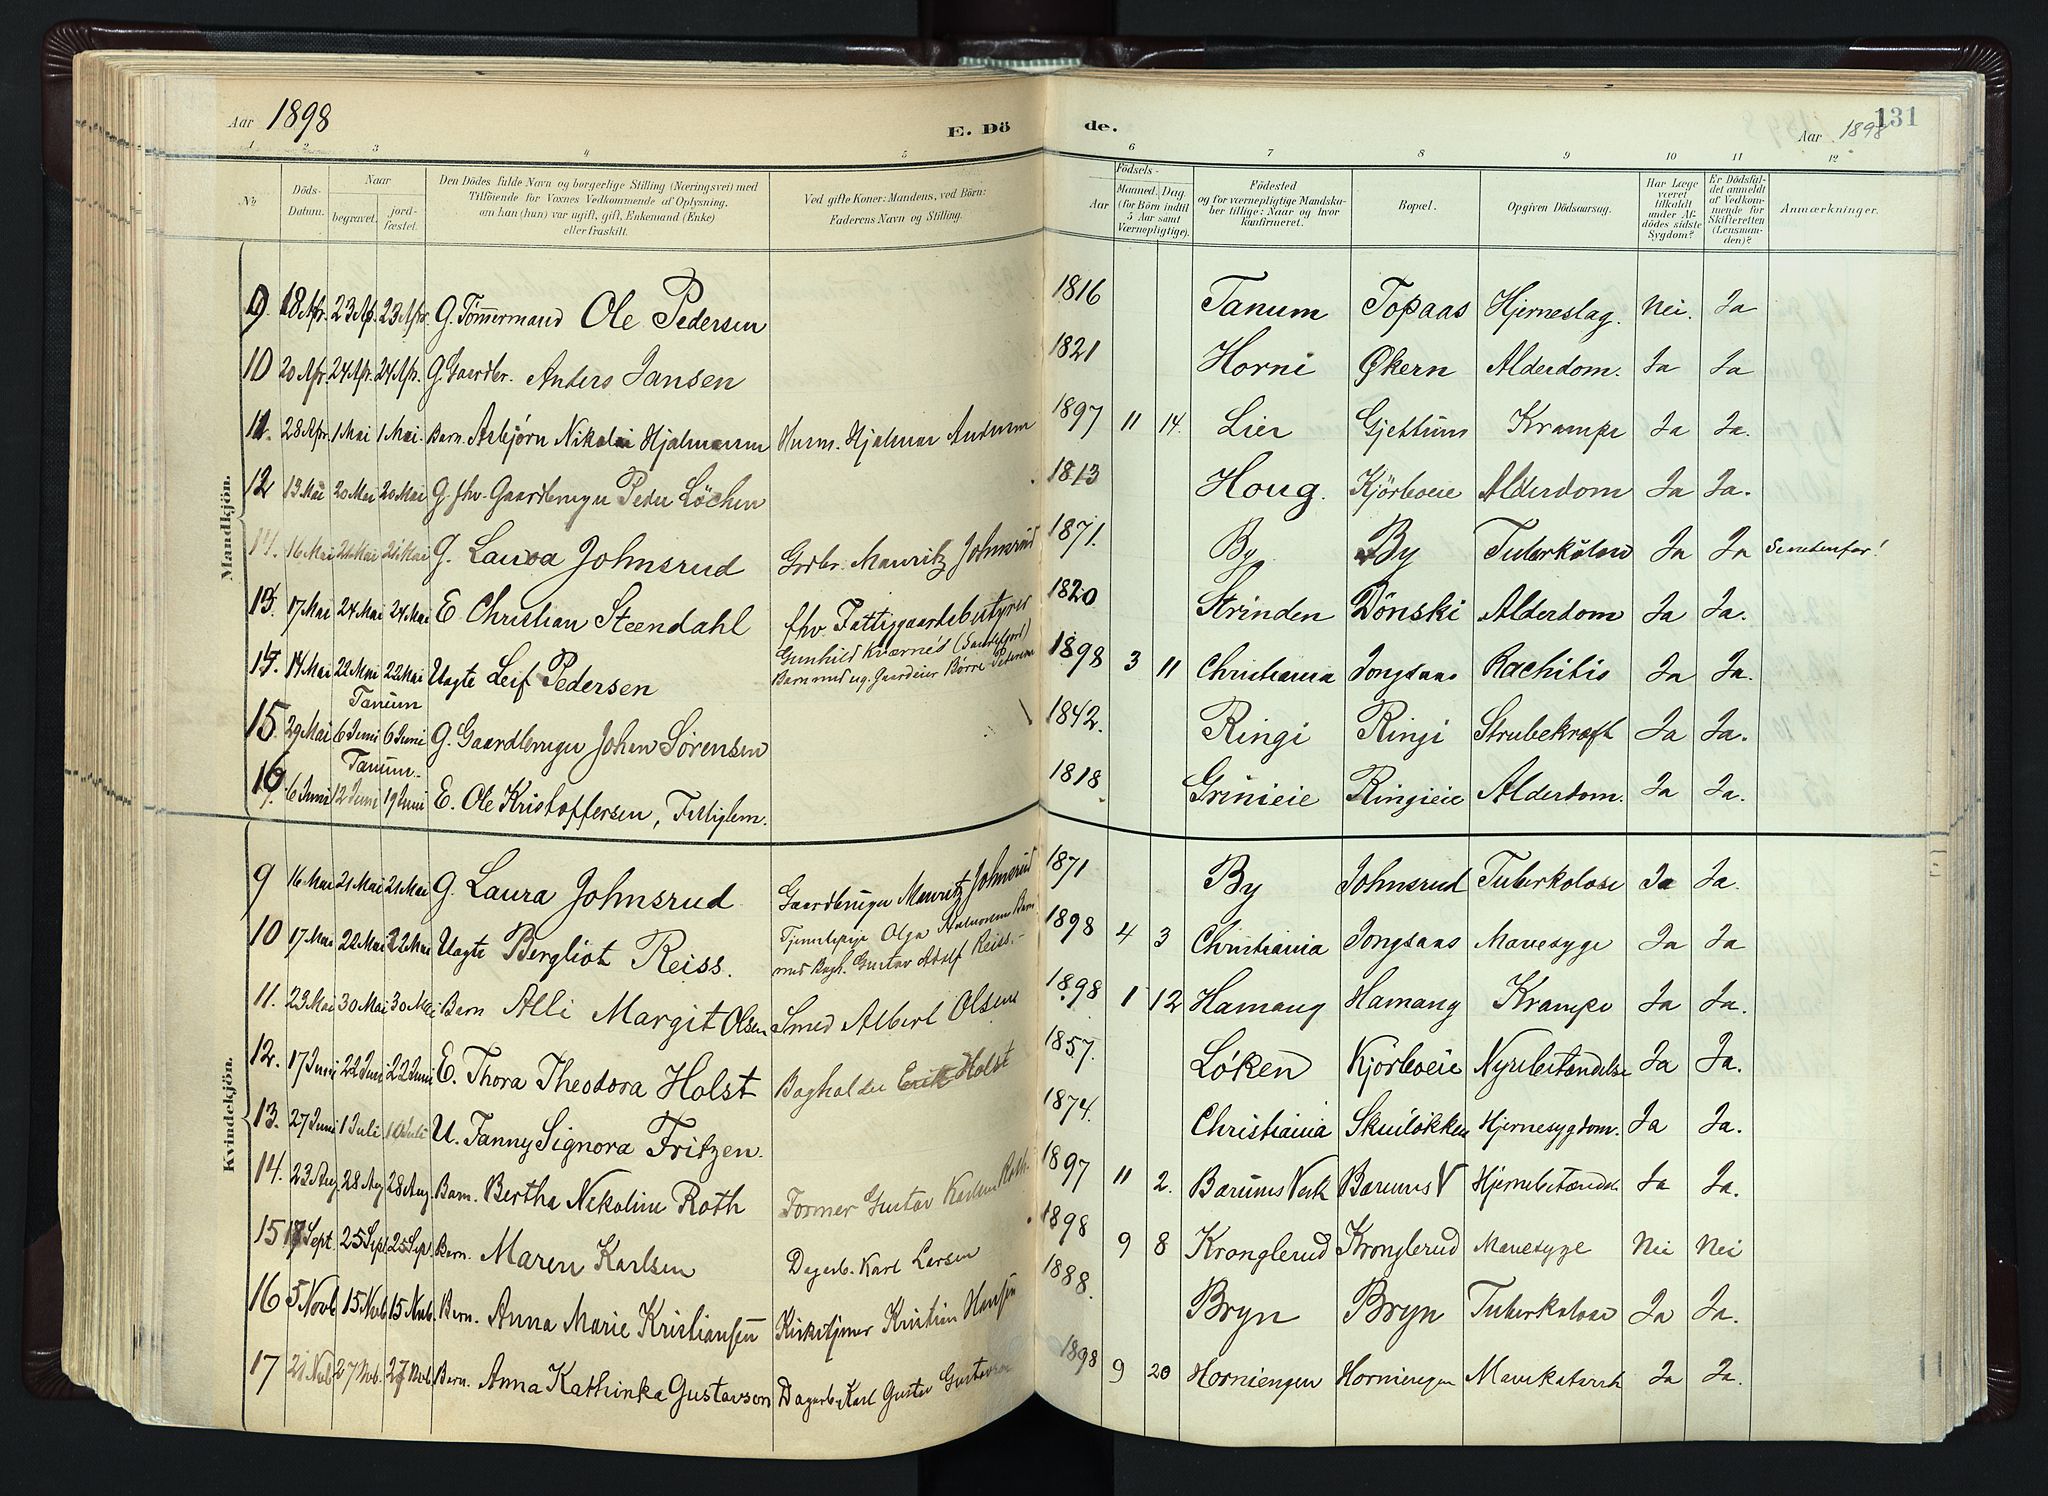 Aar 1898
E. Dö de.
131
Aar 1898
1 2 3 4 5 6 7 8 9 10 11 12
№
Döds-Datum.
Naar
begravet. jord-fæstet.
Den Dödes fulde Navn og borgerlige Stilling (Næringsvei) med Tilföiende for Voxnes Vedkommende af Oplysning, om han (hun) var ugift, gift, Enkemand (Enke) eller fraskilt.
Ved gifte Koner: Mandens, ved Börn: Faderens Navn og Stilling.
Födsels-
Aar Maaned. Dag.
(for Börn indtil 5 Aar samt Værnepligtige).
Födested og for værnepligtige Mandskaber tillige: Naar og hvor konfirmeret.
Bopæl.
Opgiven Dödsaarsag.
Har Læge været tilkaldt under Afdödes sidste Sygdom?
Er Dödsfaldet anmeldt af Vedkommende for Skifteretten (Lensmanden)?
Anmærkninger.
Mandkjön.
9. 18 Apr. 23 Ap. 23 Apr. G. Tömmermand Ole Pedersen 1816 Tanum Topaas Hjerneslag. Nei. Ja
10 20 Apr. 24 Apr. 24 Apr. G. Gaardbr. Anders Jansen 1821 Horni Økern Alderdom. Ja Ja
11. 28 Apr. 1 Mai 1 Mai. Barn. Asbjørn Nikolai Hjalmarsen Husm. Hjalmar Andersen 1897 11 14. Lier Gjettum Krampe Ja Ja.
12 13 Mai 20 Mai 20 Mai G. fhv. Gaardbruger Peder Löchen 1813 Houg. Kjörboeie Alderdom Ja Ja.
16 Mai 21 Mai 21 Mai G. Laura Johnsrud Grdbr. Mauritz Johnsrud 1871. By By Tuberkulose Ja Ja Se nedenfor!
13. 17 Mai 24 Mai 24 Mai E Christian Steendahl fhv. Fattiggaardsbestyrer 1820 Strinden Dönski Alderdom Ja Ja.
14. 14 Mai 22 Mai 22 Mai Uægte Leif Pedersen Gunhild Kværnes (Sandefjord) Barn med ug. Gaardeier Börre Pedersen 1898 3 11 Christiania Jongsaas Rachitis Ja Ja.
Tanum
15. 29 Mai 6 Juni 6 Juni G. Gaardbruger Johan Sörensen 1842. Ringi Ringi Strubekræft Ja Ja.
Tanum.
16 6 Juni 12 Juni 19 Juni E. Ole Kristoffersen, Fattiglem. 1818 Grinieie Ringieie Alderdom. Ja Ja.
Kvindekjön.
9 16 Mai 21 Mai 21 Mai G. Laura Johnsrud Gaardbruger Mauritz Johnsrud 1871 By Johnsrud Tuberkolose Ja Ja.
10 17 Mai 22 Mai 22 Mai Uægte Bergliot Reiss. Tjenestepige Olga Barn med Bogh. Gustav Adolf Reiss. 1898 4 3 Christiania Jongsaas Mavesyge Ja Ja
11. 23 Mai 30 Mai 30 Mai Barn Alli Margit Olsen Smed Albert Olsen 1898 1 12 Hamang Hamang Krampe Ja Ja.
12. 17 Juni 22 Juni 22 Juni E. Thora Theodora Holst Bogholder Erik Holst 1857. Löken Kjörboeie Nyrebetændelse Ja Ja.
13. 27 Juni 1 Juli 10 Juli U. Fanny Signora Fritzen. 1874. Christiania Skuilökken Hjernesygdom. Ja Ja.
14. 23 Aug 28 Aug 28 Aug. Barn. Bertha Nikoline Roth Former Gustav Karlsen Roth. 1897 11 2. Bærums Verk Bærums V Hjernebetændel. Ja Ja.
15 18 Sept. 25 Sep. 25 Sep. Barn. Maren Karlsen Dagarb. Karl Larsen 1898 9 8 Kronglerud Kronglerud Mavesyge Nei Nei
16 5 Novb 15 Novb 15 Novb. Barn. Anna Marie Kristiansen Kirketjener Kristian Hansen 1888. Bryn Bryn Tuberkolose Ja Ja.
17 21 Nvb 27 Nvb. 27 Nvb. Barn. Anna Kathinka Gustavson Dagarb. Karl Gustav Gustavson 1898 9 20 Horniengen Horniengen Mavekatarrh Ja Ja.